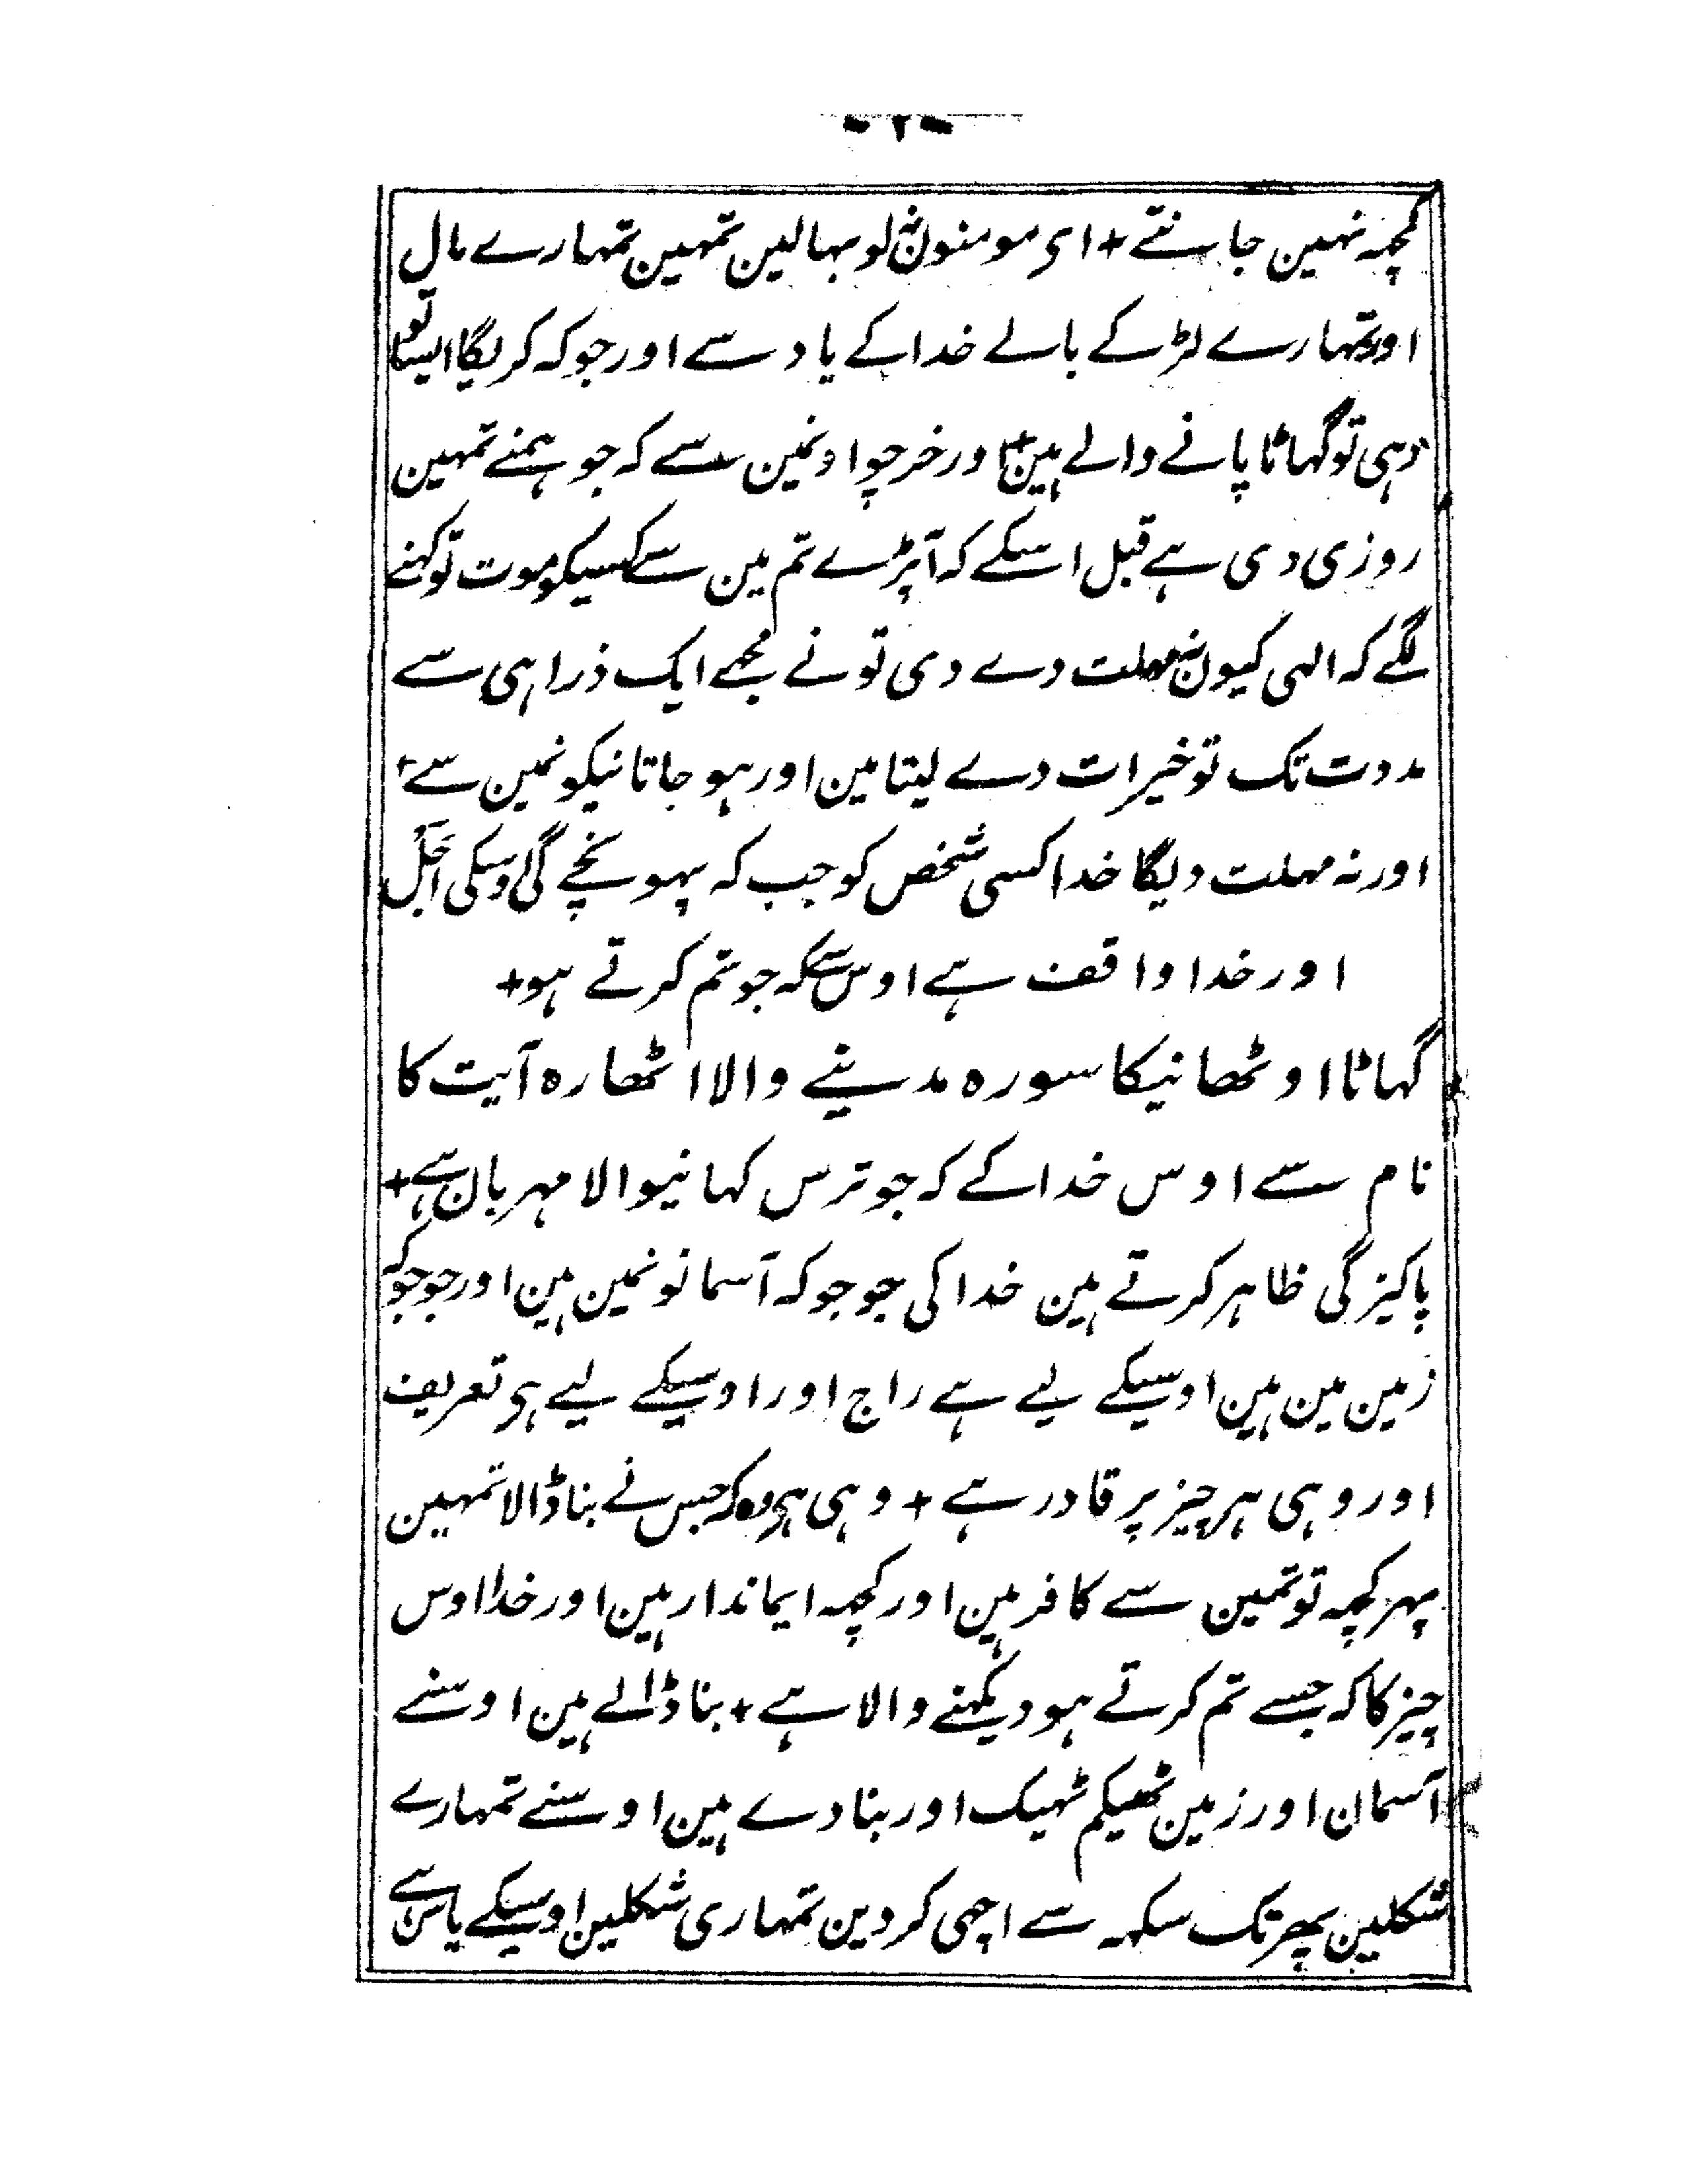 - ۲ -
کچہ نہین جانتے + ای مومنون نہ لوبہالین تمہین تمہارے مال
اور تمہارے لڑکے بالے خدا کے یاد سے اور جو کہ کریگا ایسا تو
وہی تو گہاٹا پانے والے ہین + اور خرچو اونمین سے کہ جو ہمنے تمہین
روزی دی ہے قبل اسکے کہ آپڑے تم مین سے کسیکو موت تو کہنے
لگے کہ الہی کیون نہ مہلت دے دی تو نے مجھے ایک ذرا ہی سے
مدت تک تو خیرات دے لیتا مین اور ہو جاتا نیکونمین سے +
اور نہ مہلت دیگا خدا کسی شخص کو جب کہ پہونچے گی اوسکی اجل
اور خدا واقف ہے اوس سے کہ جو تم کرتے ہو +
گہاٹا اوٹھانیکا سورہ مدینے والا اٹھارہ آیت کا
نام سے اوس خدا کے کہ جو ترس کہانیوالا مہربان ہے +
پاکیزگی ظاہر کرتے ہین خدا کی جو جو کہ آسمانونمین ہین اور جو جو کہ
زمین مین ہین اوسیکے لیے ہے راج اور اوسیکے لیے ہی تعریف
اور وہی ہر چیز پر قادر ہے + وہی ہی وہ کہ جس نے بنا ڈالا تمہین
پہر کچہ تو تمین سے کافر ہین اور کچہ ایماندار ہین اور خدا اوس
چیز کا کہ جسے تم کرتے ہو دیکہنے والا ہے + بنا ڈالے ہین اوسنے
آسمان اور زمین ٹھیکم ٹہیک اور بنا دے ہین اوسنے تمہارے
شکلین پھر تک سکہہ سے اچھی کر دین تمہاری شکلین اوسیکے پاس ہے